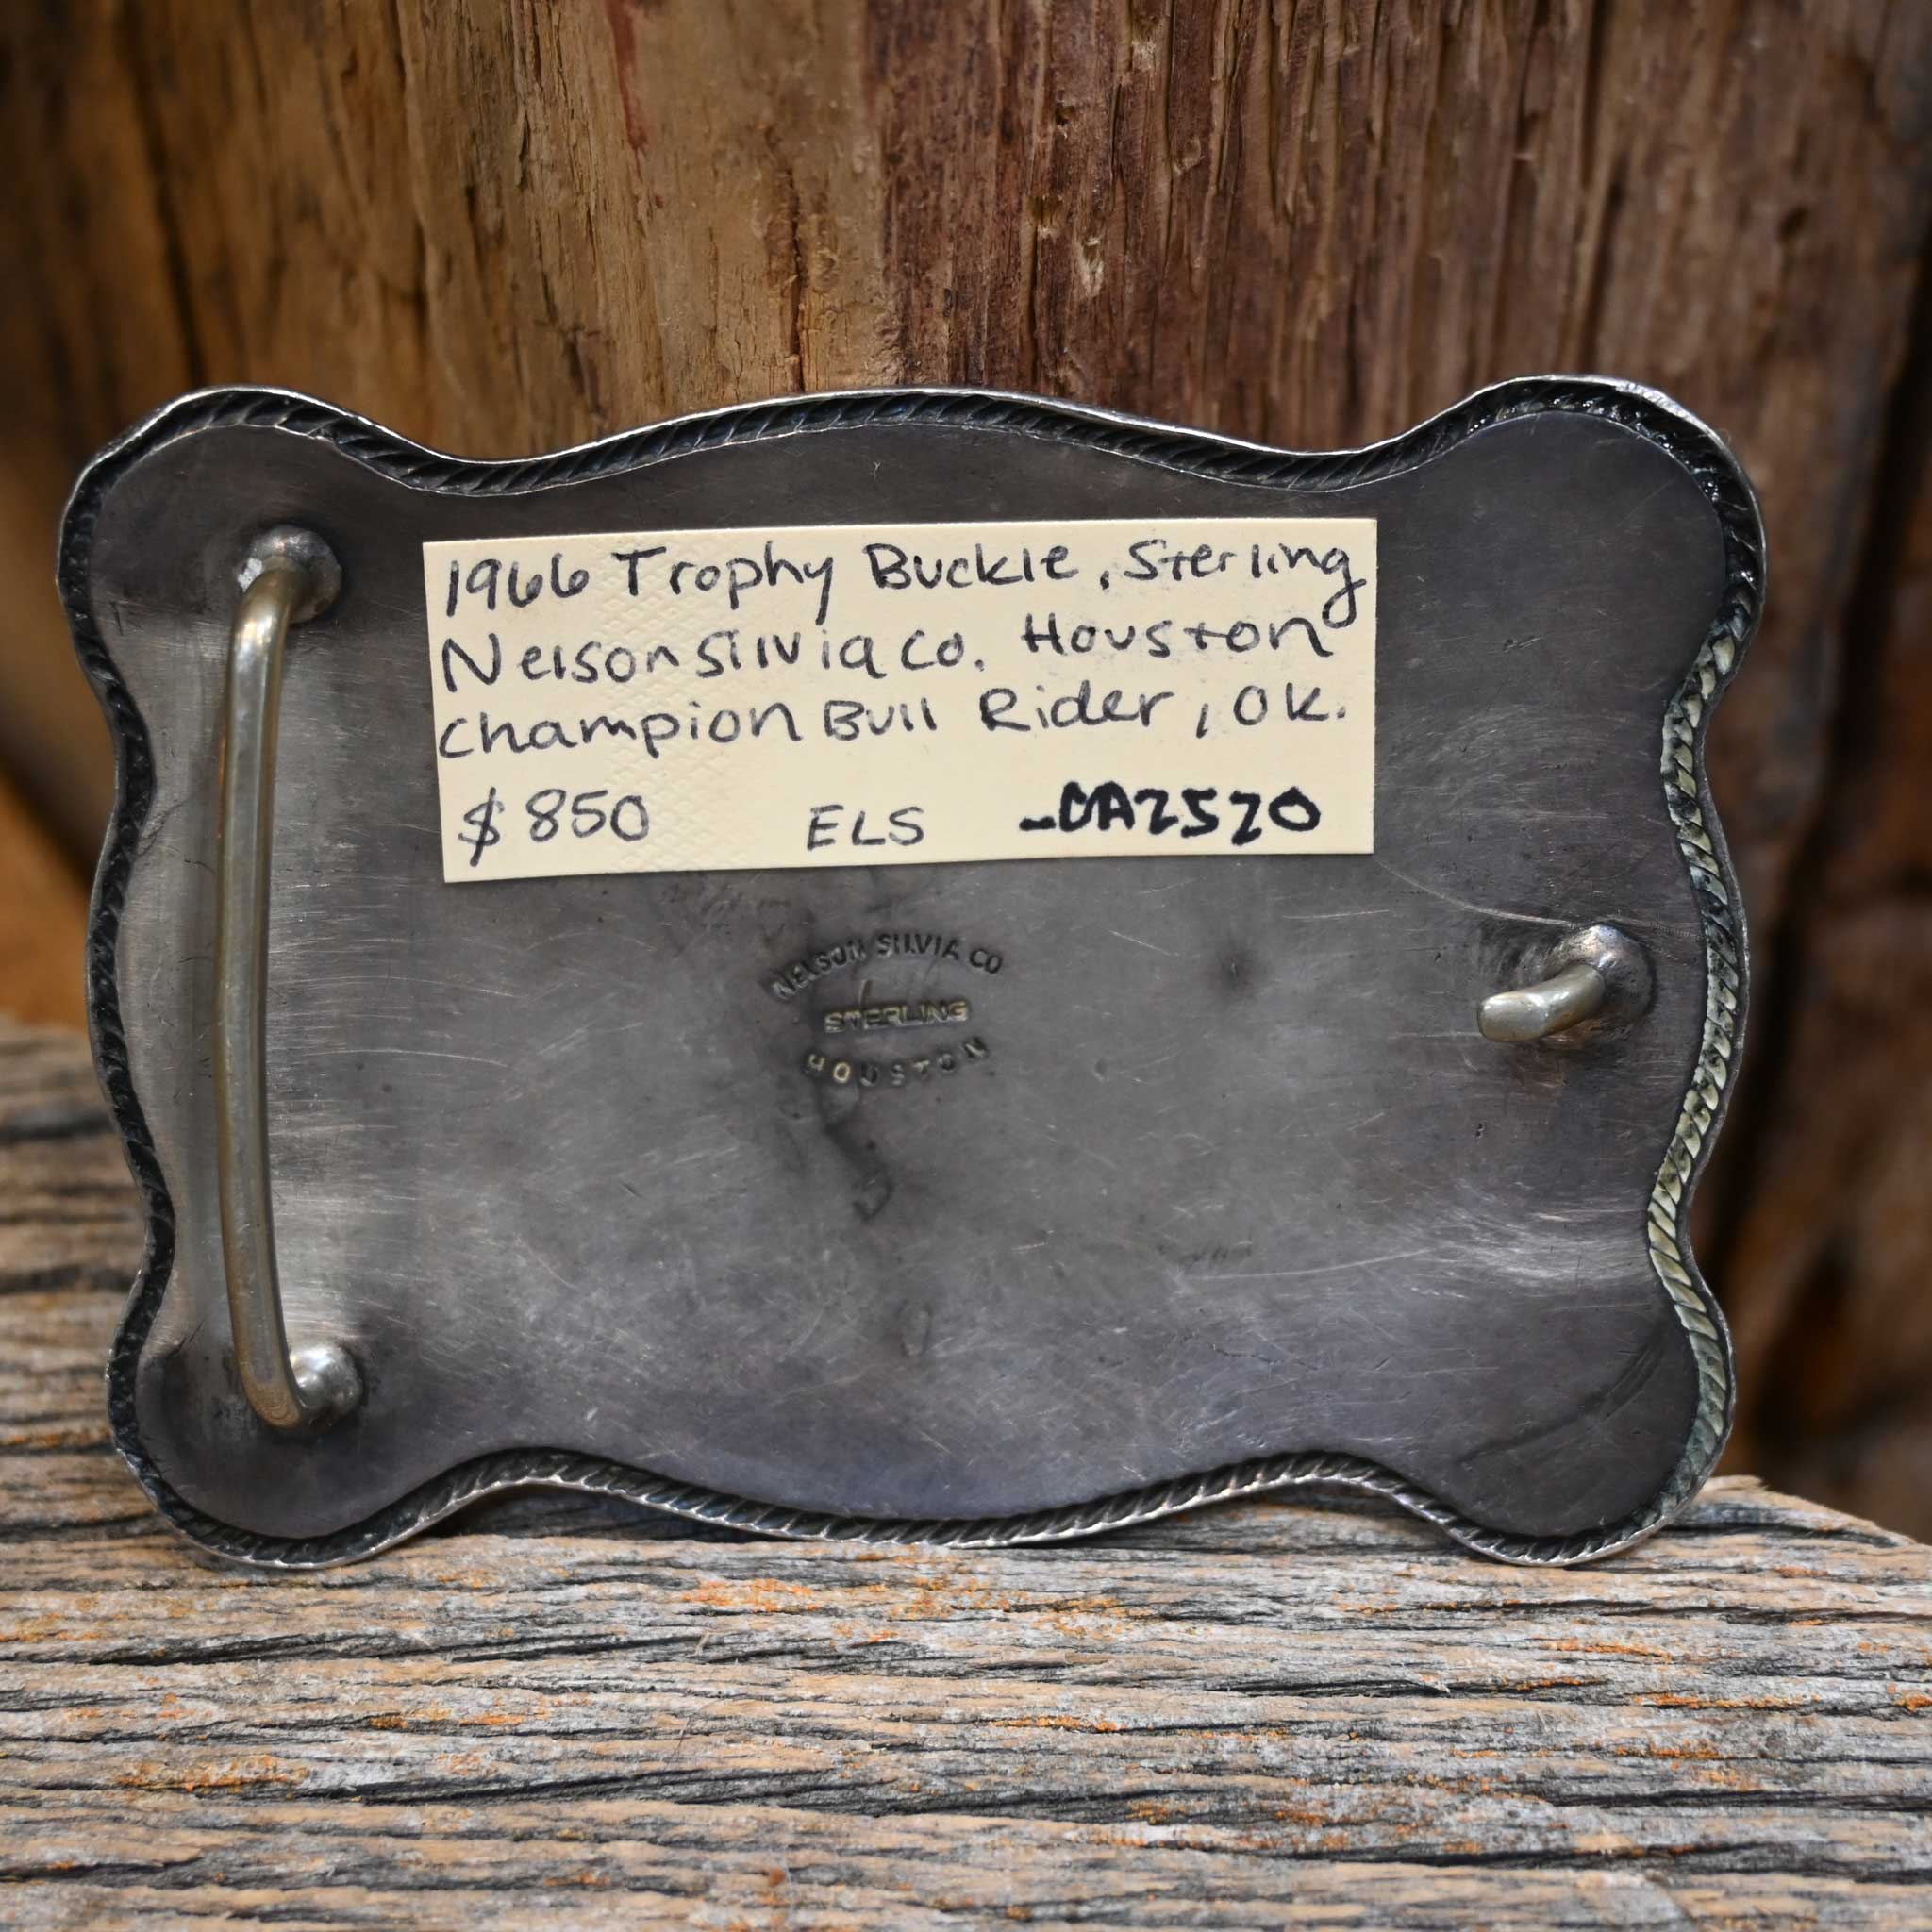 1966 Trophy Buckle, Sterling
Nelson Silvia Co. Houston
Champion Bull Rider, OK.
$850 ELS -CA2520
NELSON SILVIA CO
STERLING
HOUSTON